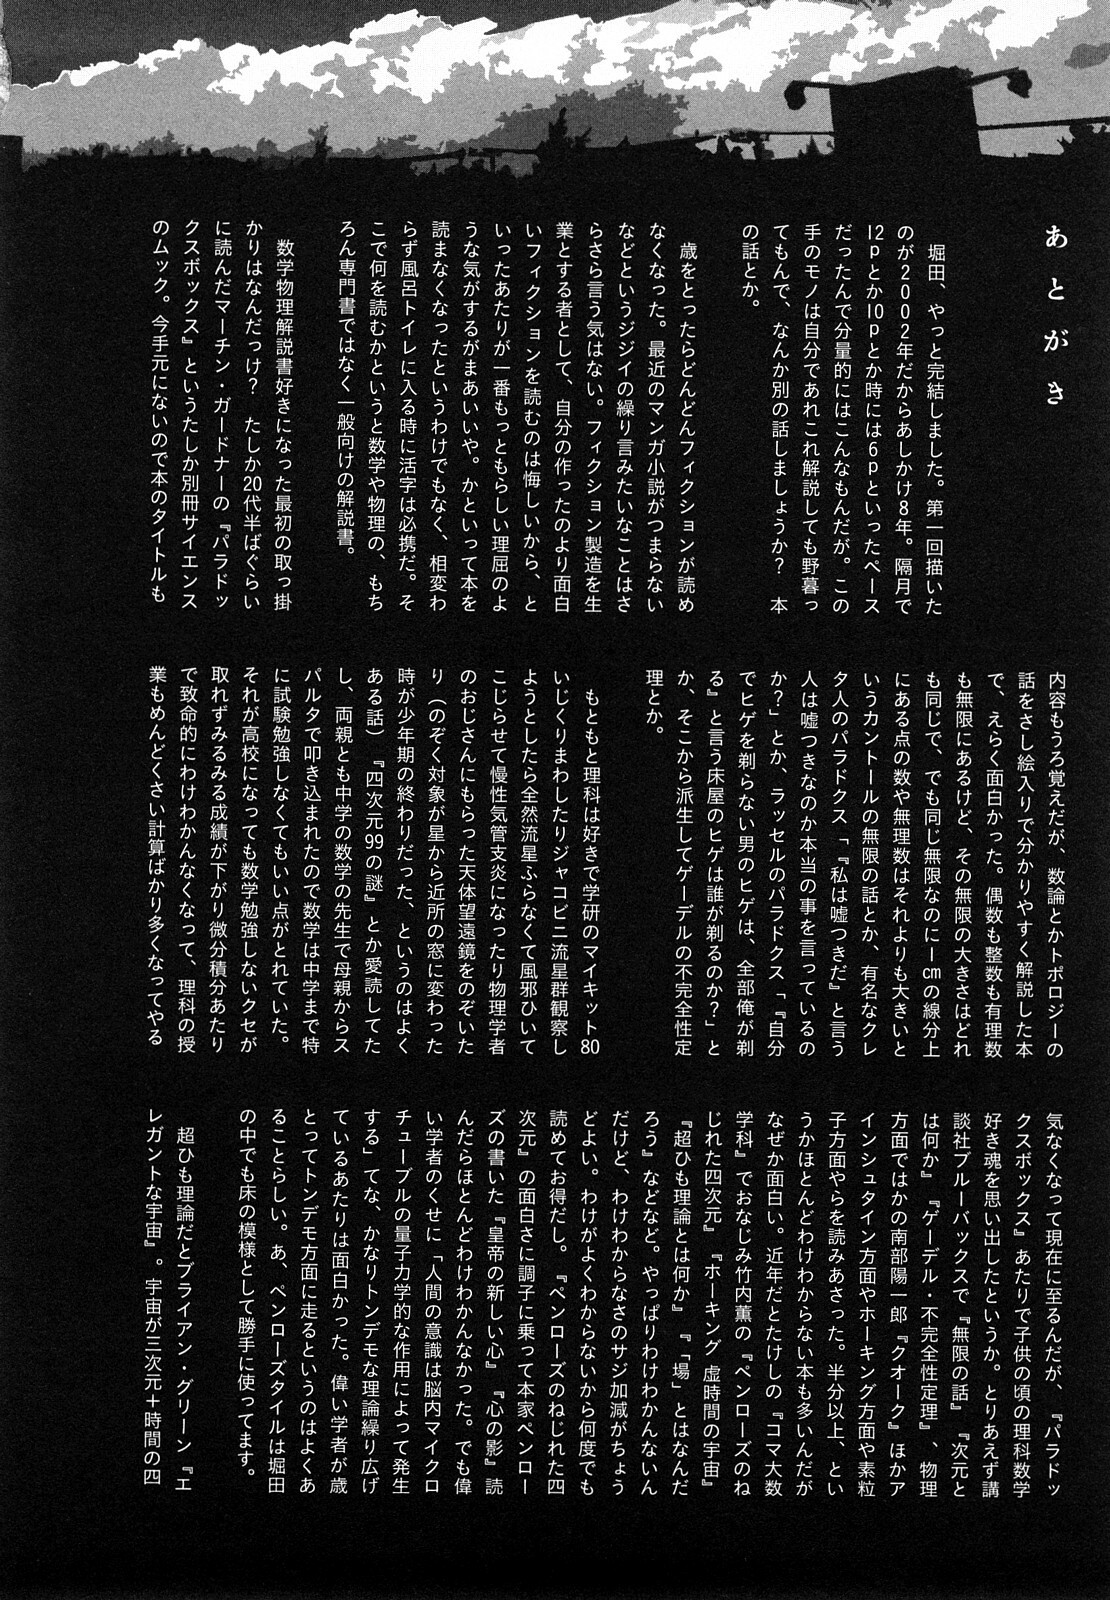 あとがき
堀田、やっと完結しました。第一回描いた
のが2002年だからあしかけ8年。隔月で
12pとか10pとか時には6pといったペース
だったんで分量的にはこんなもんだが。この
手のモノは自分であれこれ解説しても野暮っ
てもんで、なんか別の話しましょうか？　本
の話とか。
歳をとったらどんどんフィクションが読め
なくなった。最近のマンガ小説がつまらない
などというジジイの繰り言みたいなことはさ
らさら言う気はない。フィクション製造を生
業とする者として、自分の作ったのより面白
いフィクションを読むのは悔しいから、と
いったあたりが一番もっともらしい理屈のよ
うな気がするがまあいいや。かといって本を
読まなくなったというわけでもなく、相変わ
らず風呂トイレに入る時に活字は必携だ。そ
こで何を読むかというと数学や物理の、もち
ろん専門書ではなく一般向けの解説書。
数学物理解説書好きになった最初の取っ掛
かりはなんだっけ？　たしか20代半ばぐらい
に読んだマーチン・ガードナーの『パラドッ
クスボックス』というたしか別冊サイエンス
のムック。今手元にないので本のタイトルも
内容もうろ覚えだが、数論とかトポロジーの
話をさし絵入りで分かりやすく解説した本
で、えらく面白かった。偶数も整数も有理数
も無限にあるけど、その無限の大きさはどれ
も同じで、でも同じ無限なのに1cmの線分上
にある点の数や無理数はそれよりも大きいと
いうカントールの無限の話とか、有名なクレ
タ人のパラドクス「『私は嘘つきだ』と言う
人は嘘つきなのか本当の事を言っているの
か？」とか、ラッセルのパラドクス「『自分
でヒゲを剃らない男のヒゲは、全部俺が剃
る』と言う床屋のヒゲは誰が剃るのか？」と
か、そこから派生してゲーデルの不完全性定
理とか。
もともと理科は好きで学研のマイキット80
いじくりまわしたりジャコビニ流星群観察し
ようとしたら全然流星ふらなくて風邪ひいて
こじらせて慢性気管支炎になったり物理学者
のおじさんにもらった天体望遠鏡をのぞいた
り（のぞく対象が星から近所の窓に変わった
時が少年期の終わりだった、というのはよく
ある話）『四次元99の謎』とか愛読してた
し、両親とも中学の数学の先生で母親からス
パルタで叩き込まれたので数学は中学まで特
に試験勉強しなくてもいい点がとれていた。
それが高校になっても数学勉強しないクセが
取れずみるみる成績が下がり微分積分あたり
で致命的にわけわかんなくなって、理科の授
業もめんどくさい計算ばかり多くなってやる
気なくなって現在に至るんだが、『パラドッ
クスボックス』あたりで子供の頃の理科数学
好き魂を思い出したというか。とりあえず講
談社ブルーバックスで『無限の話』『次元と
は何か』『ゲーデル・不完全性定理』、物理
方面ではかの南部陽一郎『クオーク』ほかア
インシュタイン方面やホーキング方面や素粒
子方面やらを読みあさった。半分以上、とい
うかほとんどわけわからない本も多いんだが
なぜか面白い。近年だとたけしの『コマ大数
学科』でおなじみ竹内薫の『ペンローズのね
じれた四次元』『ホーキング 虚時間の宇宙』
『超ひも理論とは何か』『「場」とはなんだ
ろう』などなど。やっぱりわけわかんないん
だけど、わけわからなさのサジ加減がちょう
どよい。わけがよくわからないから何度でも
読めてお得だし。『ペンローズのねじれた四
次元』の面白さに調子に乗って本家ペンロー
ズの書いた『皇帝の新しい心』『心の影』読
んだらほとんどわけわかんなかった。でも偉
い学者のくせに「人間の意識は脳内マイクロ
チューブルの量子力学的な作用によって発生
する」てな、かなりトンデモな理論繰り広げ
ているあたりは面白かった。偉い学者が歳
とってトンデモ方面に走るというのはよくあ
ることらしい。あ、ペンローズタイルは堀田
の中でも床の模様として勝手に使ってます。
超ひも理論だとブライアン・グリーン『エ
レガントな宇宙』。宇宙が三次元＋時間の四